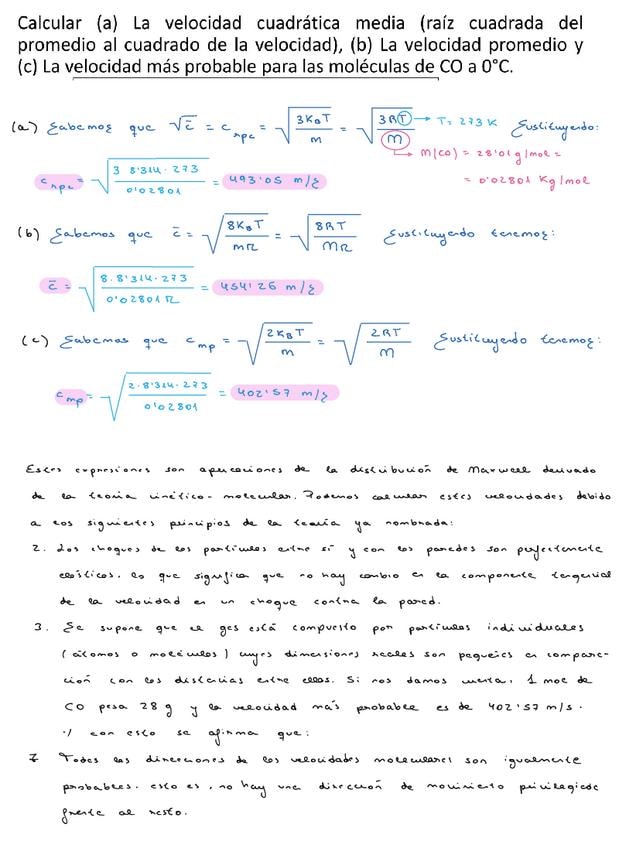 Calcular (a) La velocidad cuadrática media (raíz cuadrada del
promedio al cuadrado de la velocidad), (b) La velocidad promedio y
(c) La velocidad más probable para las moléculas de CO a 0°C.
(a) Sabemos que √c̄ = c_rpc = √(3K_BT/m) = √(3RT/M) → T = 273 K Sustituyendo:
→ M(CO) = 28'01 g/mol =
= 0'02801 Kg/mol
c_rpc = √(3 8'314·273/0'02801) = 493'05 m/s
(b) Sabemos que c̄ = √(8K_BT/mπ) = √(8RT/Mπ) Sustituyendo tenemos:
c̄ = √(8·8'314·273/0'02801π) = 454'26 m/s
(c) Sabemos que c_mp = √(2K_BT/m) = √(2RT/M) Sustituyendo tenemos:
c_mp = √(2·8'314·273/0'02801) = 402'57 m/s
Estas expresiones son aplicaciones de la distribución de Maxwell derivado
de la teoría cinético-molecular. Podemos calcular estas velocidades debido
a los siguientes principios de la teoría ya nombrada:
2. Los choques de las partículas entre sí y con las paredes son perfectamente
elásticos. lo que significa que no hay cambio en la componente tangencial
de la velocidad en un choque contra la pared.
3. Se supone que el gas está compuesto por partículas individuales
(átomos o moléculas) cuyas dimensiones reales son pequeñas en compara-
ción con las distancias entre ellas. Si nos damos cuenta, 1 mol de
CO pesa 28 g y la velocidad más probable es de 402'57 m/s.
y con esto se afirma que:
7 Todas las direcciones de las velocidades moleculares son igualmente
probables. esto es, no hay una dirección de movimiento privilegiada
frente al resto.